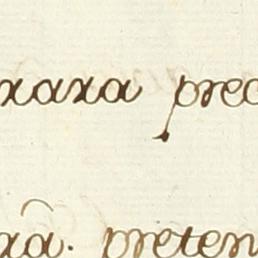 xaxa prec
xã. preten